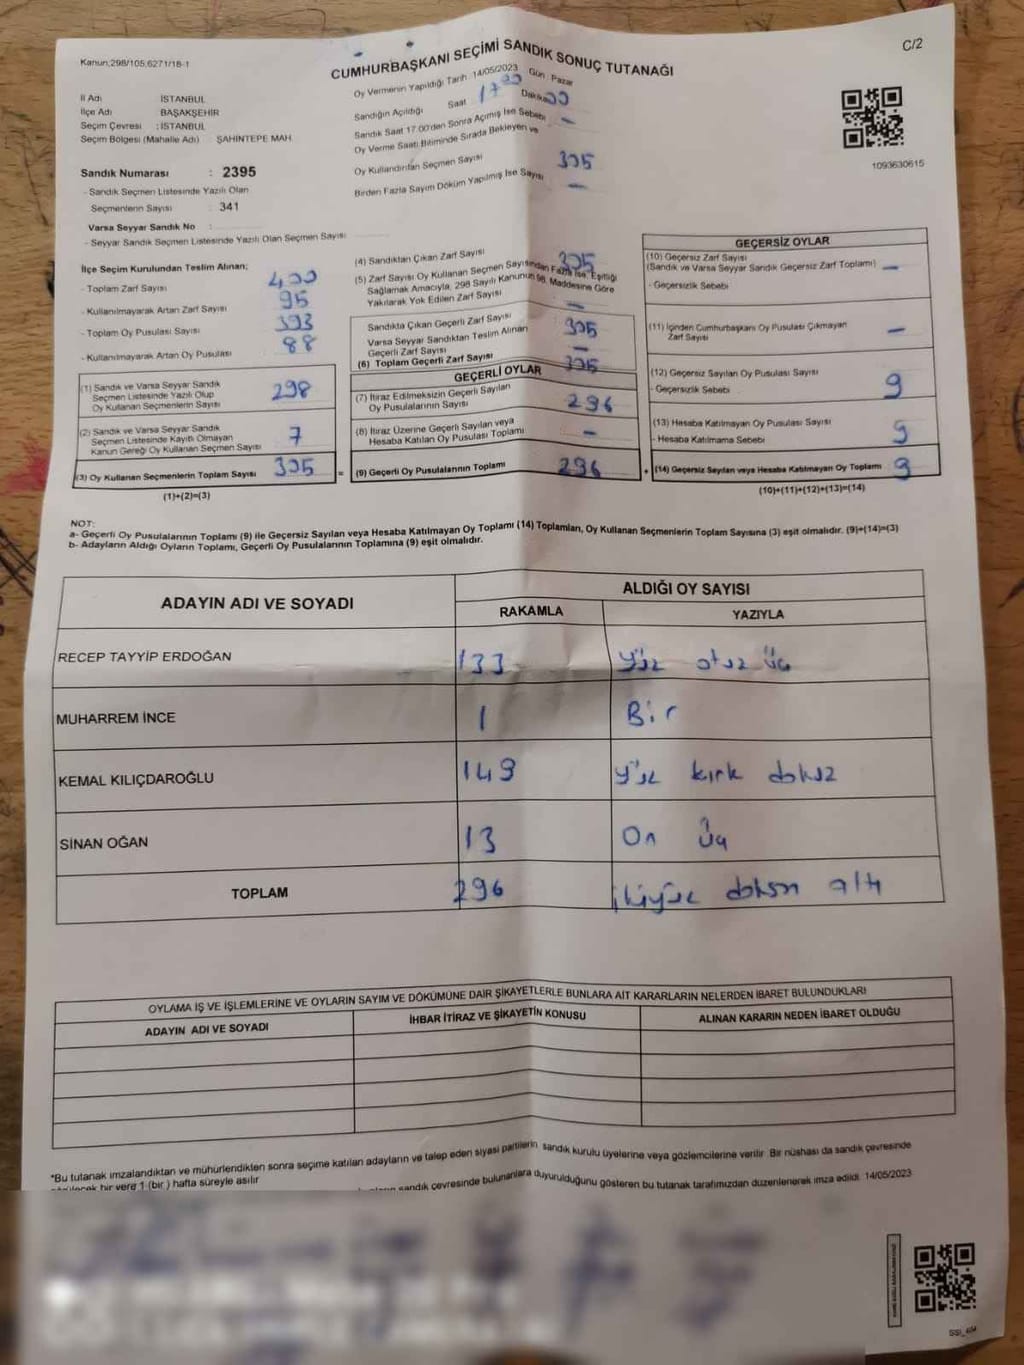 Kanun;298/105,6271/18-1
C/2
CUMHURBAŞKANI SEÇİMİ SANDIK SONUÇ TUTANAĞI
İl Adı İSTANBUL
İlçe Adı BAŞAKŞEHİR
Seçim Çevresi : İSTANBUL
Seçim Bölgesi (Mahalle Adı) ŞAHİNTEPE MAH.
Oy Vermenin Yapıldığı Tarih 14/05/2023 Gün Pazar
Sandığın Açıldığı Saat 17 Dakika
Sandık Saat 17:00'den Sonra Açımış İse Sebebi –
Oy Verme Saati Bitiminde Sırada Bekleyen ve
Oy Kullandırılan Seçmen Sayısı 305
Birden Fazla Sayım Döküm Yapılmış İse Sayısı –
1093630615
Sandık Numarası : 2395
- Sandık Seçmen Listesinde Yazılı Olan
Seçmenlerin Sayısı : 341
Varsa Seyyar Sandık No :
- Seyyar Sandık Seçmen Listesinde Yazılı Olan Seçmen Sayısı
İlçe Seçim Kurulundan Teslim Alınan;
- Toplam Zarf Sayısı 400
- Kullanılmayarak Artan Zarf Sayısı 95
- Toplam Oy Pusulası Sayısı 393
- Kullanılmayarak Artan Oy Pusulası 88
(1) Sandık ve Varsa Seyyar Sandık
Seçmen Listesinde Yazılı Olup
Oy Kullanan Seçmenlerin Sayısı 298
(2) Sandık ve Varsa Seyyar Sandık
Seçmen Listesinde Kayıtlı Olmayan
Kanun Gereği Oy Kullanan Seçmen Sayısı 7
(3) Oy Kullanan Seçmenlerin Toplam Sayısı 305 =
(1)+(2)=(3)
(4) Sandıktan Çıkan Zarf Sayısı 305
(5) Zarf Sayısı Oy Kullanan Seçmen Sayısından Fazla İse, Eşitliği
Sağlamak Amacıyla, 298 Sayılı Kanunun 98. Maddesine Göre
Yakılarak Yok Edilen Zarf Sayısı –
Sandıkta Çıkan Geçerli Zarf Sayısı 305
Varsa Seyyar Sandıktan Teslim Alınan
Geçerli Zarf Sayısı –
(6) Toplam Geçerli Zarf Sayısı 305
GEÇERLİ OYLAR
(7) İtiraz Edilmeksizin Geçerli Sayılan
Oy Pusulalarının Sayısı 296
(8) İtiraz Üzerine Geçerli Sayılan veya
Hesaba Katılan Oy Pusulası Toplamı –
(9) Geçerli Oy Pusulalarının Toplamı 296 +
GEÇERSİZ OYLAR
(10) Geçersiz Zarf Sayısı
(Sandık ve Varsa Seyyar Sandık Geçersiz Zarf Toplamı) –
- Geçersizlik Sebebi
(11) İçinden Cumhurbaşkanı Oy Pusulası Çıkmayan
Zarf Sayısı –
(12) Geçersiz Sayılan Oy Pusulası Sayısı
- Geçersizlik Sebebi 9
(13) Hesaba Katılmayan Oy Pusulası Sayısı
- Hesaba Katılmama Sebebi 9
(14) Geçersiz Sayılan veya Hesaba Katılmayan Oy Toplamı 9
(10)+(11)+(12)+(13)=(14)
NOT:
a- Geçerli Oy Pusulalarının Toplamı (9) ile Geçersiz Sayılan veya Hesaba Katılmayan Oy Toplamı (14) Toplamları, Oy Kullanan Seçmenlerin Toplam Sayısına (3) eşit olmalıdır. (9)+(14)=(3)
b- Adayların Aldığı Oyların Toplamı, Geçerli Oy Pusulalarının Toplamına (9) eşit olmalıdır.
ADAYIN ADI VE SOYADI ALDIĞI OY SAYISI
RAKAMLA YAZIYLA
RECEP TAYYİP ERDOĞAN 133 yüz otuz üç
MUHARREM İNCE 1 Bir
KEMAL KILIÇDAROĞLU 149 yüz kırk dokuz
SİNAN OĞAN 13 On üç
TOPLAM 296 ikiyüz doksan altı
OYLAMA İŞ VE İŞLEMLERİNE VE OYLARIN SAYIM VE DÖKÜMÜNE DAİR ŞİKAYETLERLE BUNLARA AİT KARARLARIN NELERDEN İBARET BULUNDUKLARI
ADAYIN ADI VE SOYADI İHBAR İTİRAZ VE ŞİKAYETİN KONUSU ALINAN KARARIN NEDEN İBARET OLDUĞU
*Bu tutanak imzalandıktan ve mühürlendikten sonra seçime katılan adayların ve talep eden siyasi partilerin, sandık kurulu üyelerine veya gözlemcilerine verilir. Bir nüshası da sandık çevresinde
bir yere 1 (bir) hafta süreyle asılır
sandık çevresinde bulunanlara duyurulduğunu gösteren bu tutanak tarafımızdan düzenlenerek imza edildi. 14/05/2023